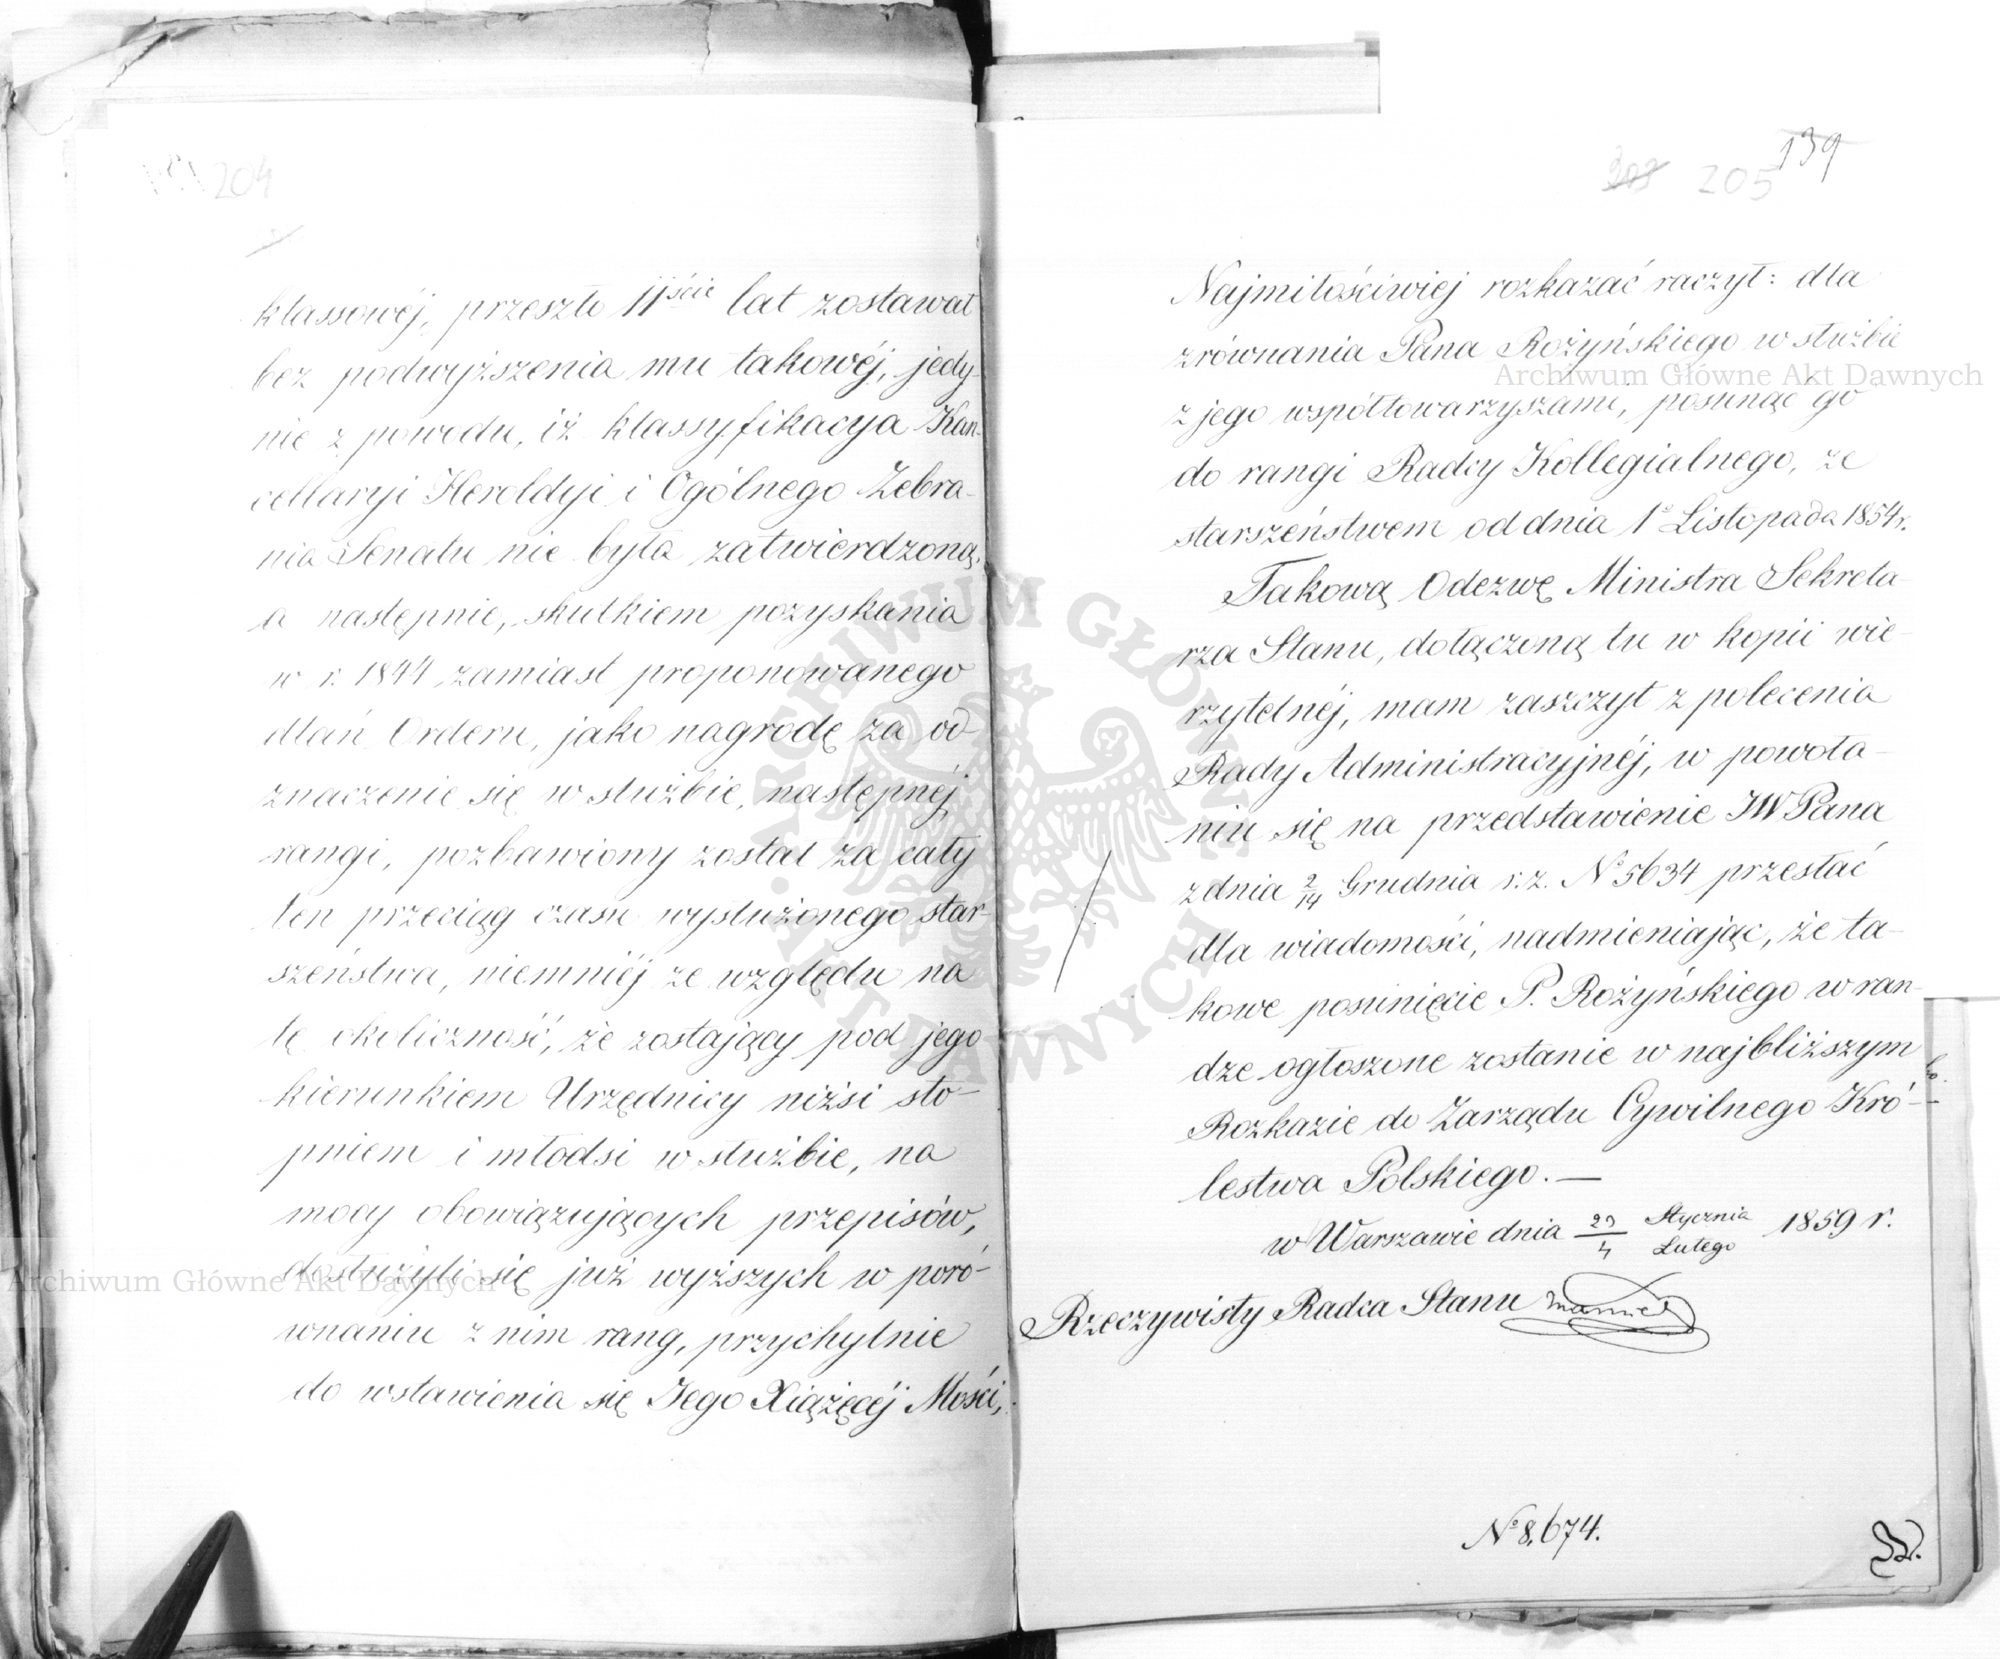 204
klassowéj, przeszło 11ście lat zostawał
bez podwyższenia mu takowéj, jedy-
nie z powodu, iż klassyfikacya Kan-
cellaryi Heroldyi i Ogólnego Zebra-
nia Senatu nie była zatwierdzoną,
a następnie, skutkiem pozyskania
w r. 1844 zamiast proponowanego
dlań Orderu, jako nagrodę za od-
znaczenie się w służbie, następnéj
rangi, pozbawiony został za cały
ten przeciąg czasu wysłużonego star-
szeństwa, niemniéj ze względu na
tę okoliczność, że zostający pod jego
kierunkiem Urzędnicy niżsi sto-
pniem i młodsi w służbie, na
mocy obowiązujących przepisów,
dosłużyli się już wyższych w poró-
wnaniu z nim rang, przychylnie
do wstawienia się Jego Xiążęcéj Mości,
205 139
Najmiłościwiéj rozkazać raczył: dla
zrównania Pana Rożyńskiego w służbie
z jego współtowarzyszami, posunąć go
do rangi Radcy Kollegialnego, ze
starszeństwem od dnia 1o Listopada 1854 r.
Takową Odezwę Ministra Sekreta-
rza Stanu, dołączoną tu w kopii wie-
rzytelnéj, mam zaszczyt z polecenia
Rady Administracyjnéj, w powoła-
niu się na przedstawienie JW Pana
z dnia 2/14 Grudnia r. z. No 5634 przesłać
dla wiadomości, nadmieniając, że ta-
kowe posunięcie P. Rożyńskiego w ran-
dze ogłoszone zostanie w najbliższym
Rozkazie do Zarządu Cywilnego Kró-
lestwa Polskiego. —
w Warszawie dnia 23/4 Stycznia/Lutego 1859 r.
Rzeczywisty Radca Stanu
No 8,674.
Archiwum Główne Akt Dawnych
Archiwum Główne Akt Dawnych
ARCHIWUM GŁÓWNE · AKT DAWNYCH ·